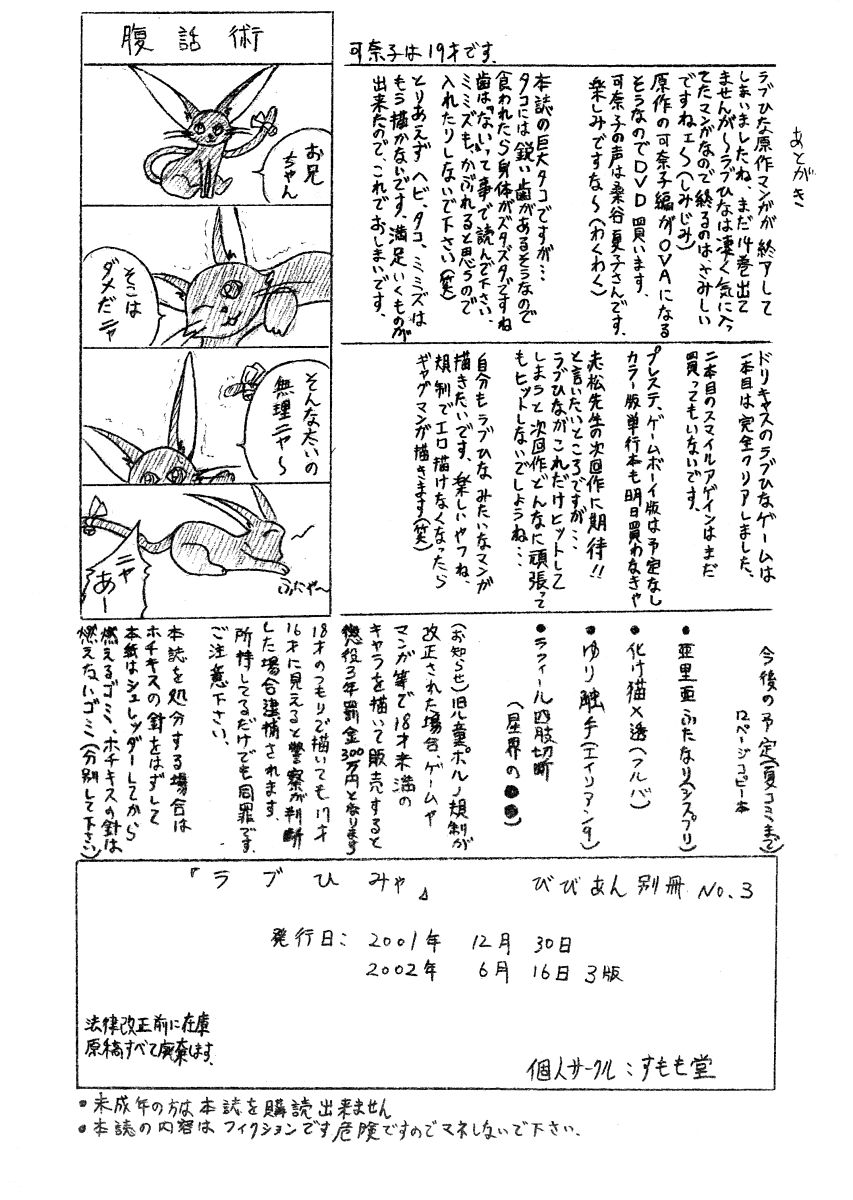 あとがき
ラブひな原作マンガが終アして
しまいましたね、まだ14巻出て
ませんが〜ラブひなは凄く気に入っ
てたマンガなので終るのは、さみしい
ですねェ〜(しみじみ)
原作の可奈子編がOVAになる
そうなのでDVD買います、
可奈子の声は桑谷夏子さんです、
楽しみですな〜(わくわく)
可奈子は19才です.
本誌の巨大タコですが…
タコには鋭い歯があるそうなので
食われたら身体がズタズタですね
歯は「ない」って事で読んで下さい、
ミミズも、かぶれると思うので
入れたりしないで下さい(笑)
とりあえずヘビ、タコ、ミミズは
もう描かないです、満足いくものが
出来たので、これでおしまいです、
腹話術
お兄
ちゃん
そこは
ダメだニャ
そんな太いの
無理ニャ〜
ニャ
あー
ふにゃ〜
ドリキャスのラブひなゲームは
一本目は完全クリアしました、
二本目のスマイルアゲインはまだ
買ってもいないです、
プレステ、ゲームボーイ版は予定なし
カラー版単行本も明日買わなきゃ
赤松先生の次回作に期待!!
と言いたいところですが…
ラブひながこれだけヒットして
しまうと次回作どんなに頑張って
もヒットしないでしょうね…
自分もラブひなみたいなマンガ
描きたいです、楽しいやつね、
規制でエロ描けなくなったら
ギャグマンガ描きます(笑)
今後の予定(夏コミまで)
12ページコピー本
●亜里亜ふたなり(シスプリ)
●化け猫×透(フルバ)
●ゆり触手(エイリアン9)
●ラフィール四肢切断
(星界の●●)
(お知らせ)児童ポルノ規制が
改正された場合、ゲームや
マンガ等で18才未満の
キャラを描いて販売すると
懲役3年罰金300万円となります
18才のつもりで描いても17才
16才に見えると警察が判断
した場合逮捕されます、
所持してるだけでも同罪です、
ご注意下さい、
本誌を処分する場合は
ホチキスの針をはずして
本紙はシュレッダーしてから
燃えるゴミ、ホチキスの針は
燃えないゴミ(分別して下さい)
『ラブひみゃ』 びびあん別冊 No.3
発行日: 2001年 12月 30日
2002年 6月 16日 3版
法律改正前に在庫
原稿すべて廃棄します.
個人サークル:すもも堂
●未成年の方は本誌を購読出来ません
●本誌の内容はフィクションです危険ですのでマネしないで下さい.